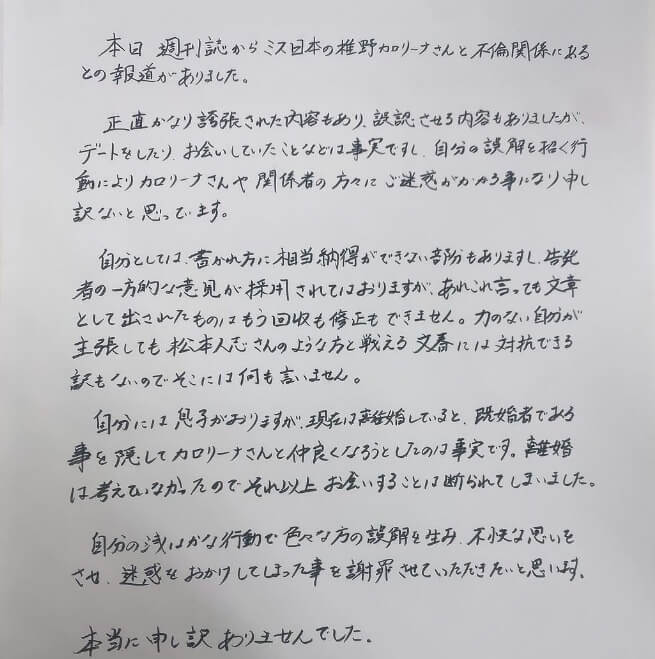 本日 週刊誌からミス日本の椎野カロリーナさんと不倫関係にある
との報道がありました。
正直かなり誇張された内容もあり、誤認させる内容もありましたが、
デートをしたり、お会いしていたことなどは事実ですし、自分の誤解を招く行
動によりカロリーナさんや関係者の方々にご迷惑がかかる事になり申し
訳ないと思っています。
自分としては、書かれ方に相当納得ができない部分もありますし、告発
者の一方的な意見が採用されてはおりますが、あれこれ言っても文章
として出されたものはもう回収も修正もできません。力のない自分が
主張しても松本人志さんのような方と戦える文春には対抗できる
訳もないのでそこには何も言いません。
自分には息子がおりますが、現在は離婚していると、既婚者である
事を隠してカロリーナさんと仲良くなろうとしたのは事実です。離婚
は考えていなかったのでそれ以上お会いすることは断られてしまいました。
自分の浅はかな行動で色々な方の誤解を生み、不快な思いを
させ、迷惑をおかけしてしまった事を謝罪させていただきたいと思います。
本当に申し訳ありませんでした。